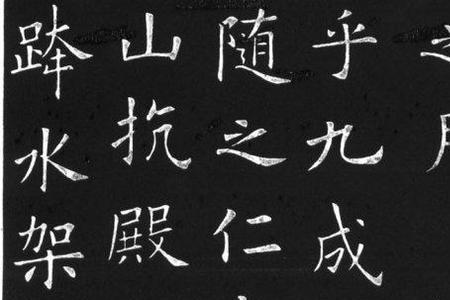 乎九成
随之仁
山抗殿
跨水架